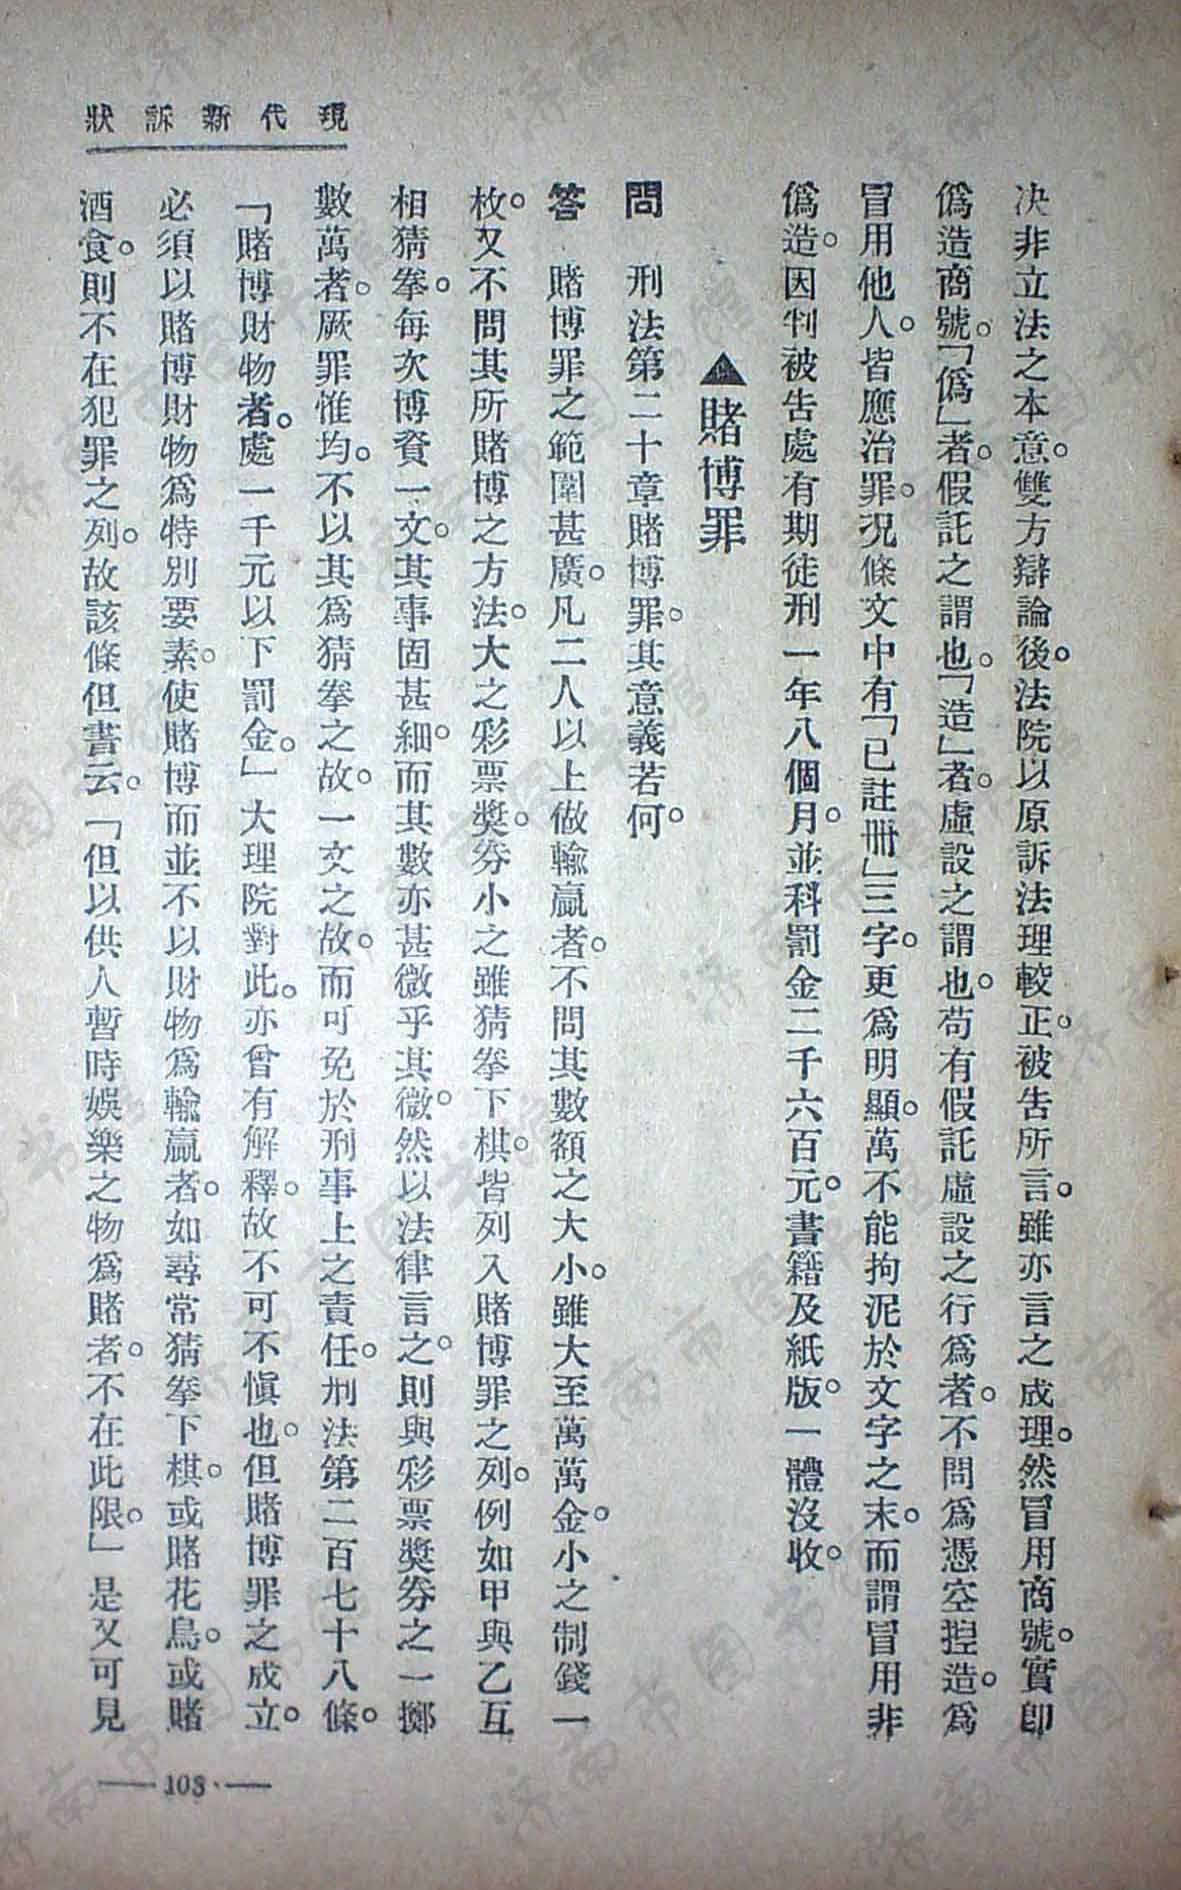 現代新訴狀
決非立法之本意。雙方辯論後。法院以原訴法理較正。被告所言。雖亦言之成理。然冒用商號。實即
僞造商號。「僞」者。假託之謂也。「造」者。虛設之謂也。苟有假託虛設之行爲者。不問爲憑空揑造。爲
冒用他人。皆應治罪。況條文中有「已註冊」三字。更爲明顯。萬不能拘泥於文字之末。而謂冒用非
僞造。因判被告處有期徒刑一年八個月。並科罰金二千六百元。書籍及紙版。一體沒收。
▲賭博罪
問　刑法第二十章賭博罪。其意義若何。
答　賭博罪之範圍甚廣。凡二人以上做輸贏者。不問其數額之大小。雖大至萬萬金。小之制錢一
枚。又不問其所賭博之方法。大之彩票獎券。小之雖猜拳下棋。皆列入賭博罪之列。例如甲與乙互
相猜拳。每次博資一文。其事固甚細。而其數亦甚微乎其微。然以法律言之。則與彩票獎券之一擲
數萬者。厥罪惟均。不以其爲猜拳之故。一文之故。而可免於刑事上之責任。刑法第二百七十八條。
「賭博財物者。處一千元以下罰金。」大理院對此。亦曾有解釋。故不可不愼也。但賭博罪之成立。
必須以賭博財物爲特別要素。使賭博而並不以財物爲輸贏者。如尋常猜拳下棋。或賭花鳥。或賭
酒食。則不在犯罪之列。故該條但書云。「但以供人暫時娛樂之物爲賭者。不在此限。」是又可見
—103—
济南市图书馆